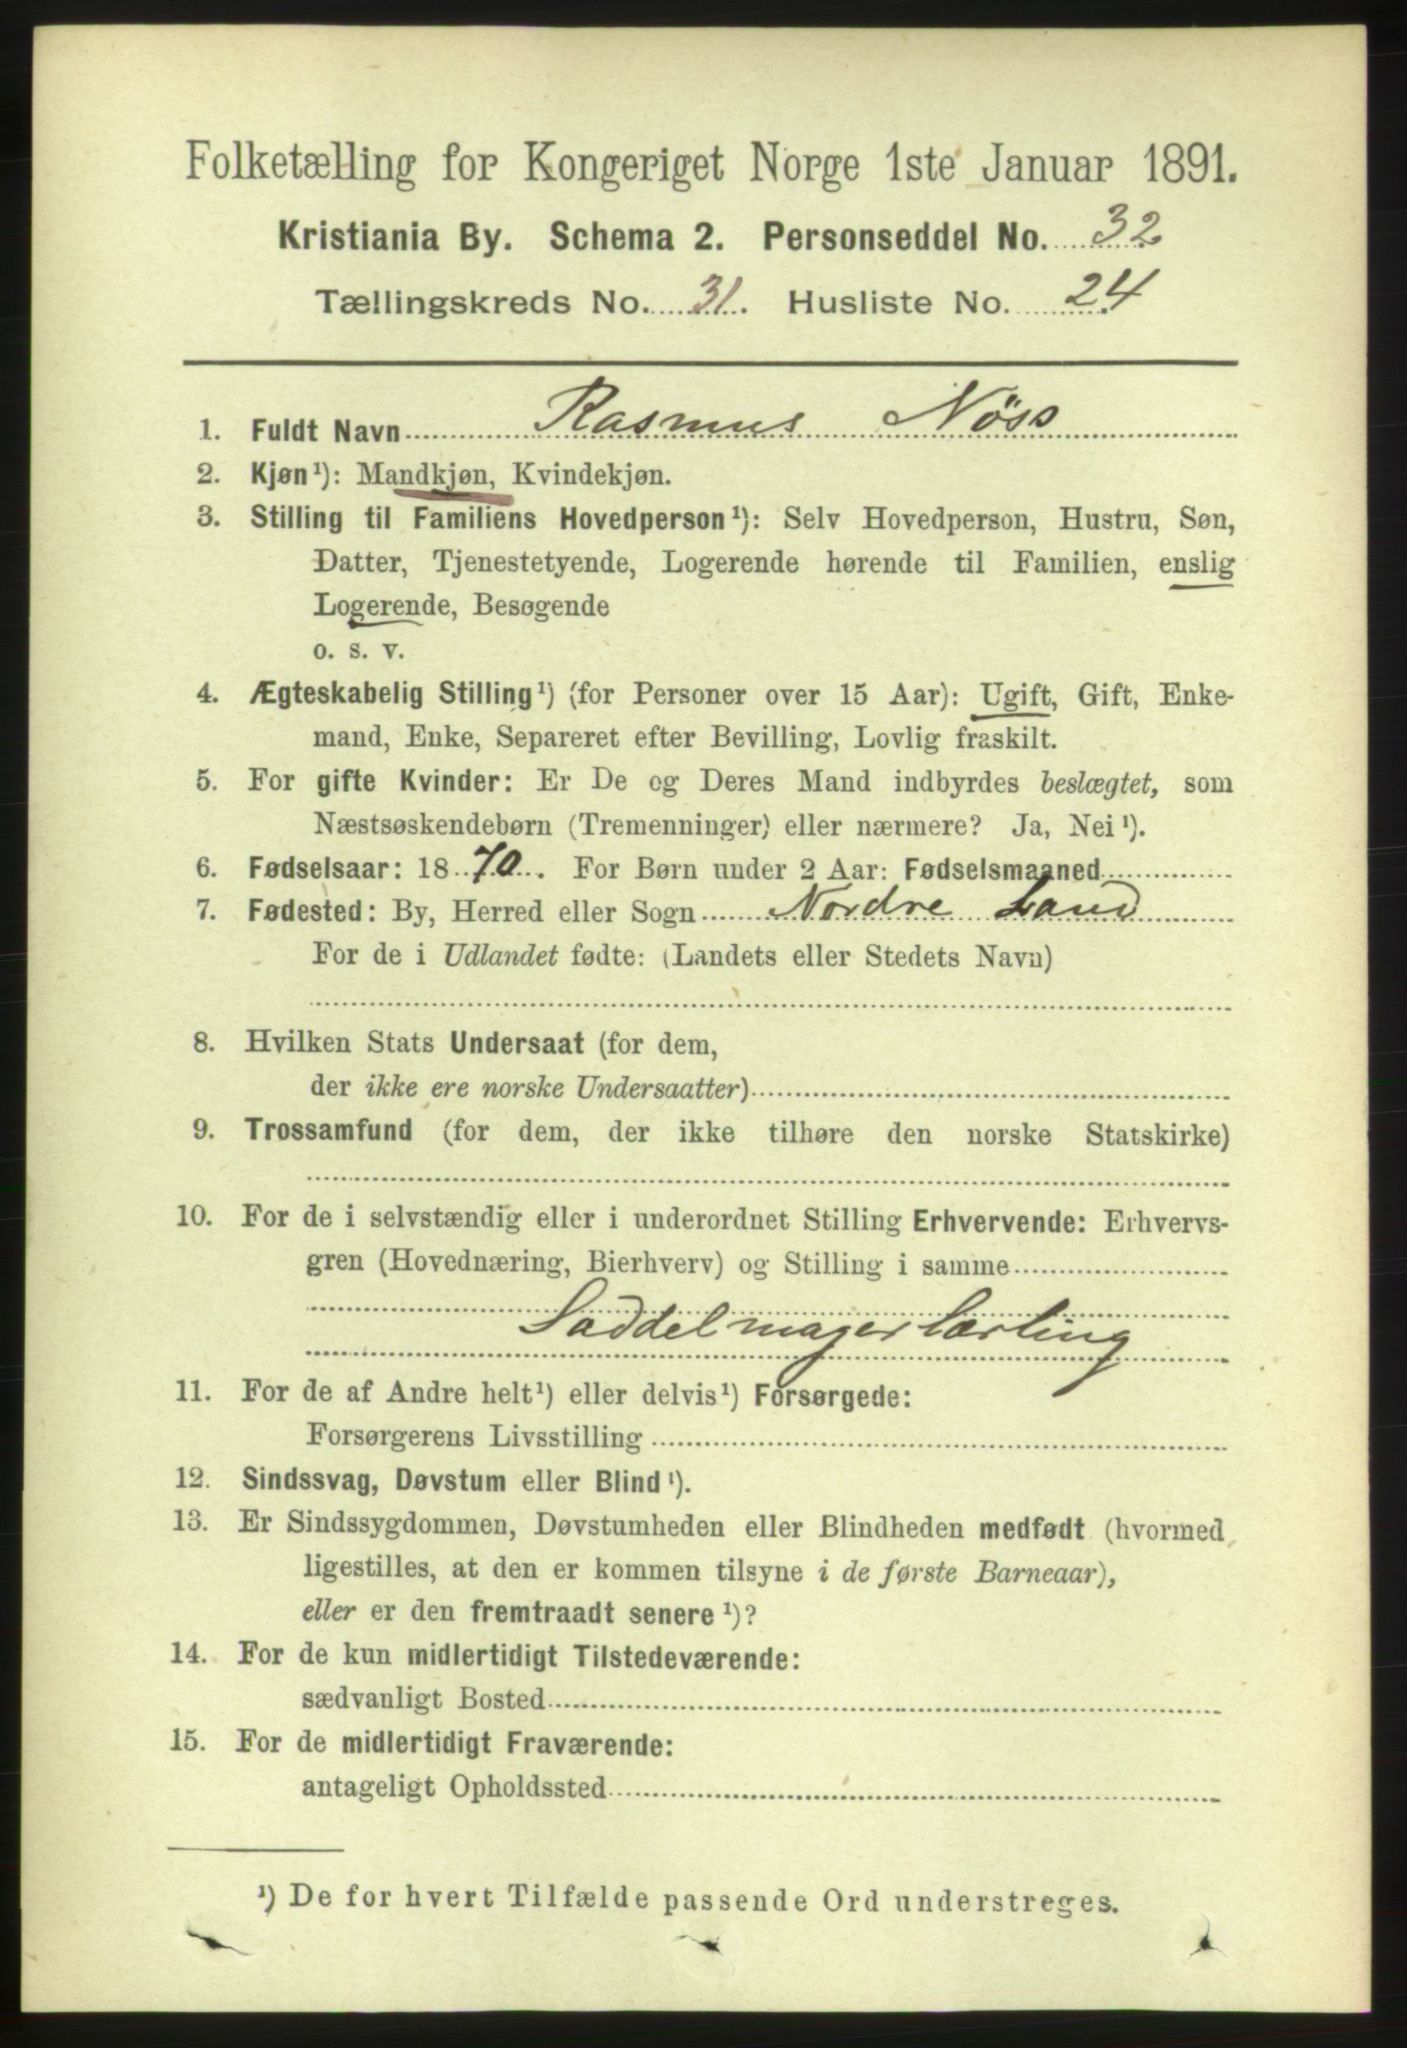 Folketælling for Kongeriget Norge 1ste Januar 1891.
Kristiania By. Schema 2. Personseddel No. 32
Tællingskreds No. 31. Husliste No. 24
1. Fuldt Navn Rasmus Nöss
2. Kjøn¹): Mandkjøn, Kvindekjøn.
3. Stilling til Familiens Hovedperson¹): Selv Hovedperson, Hustru, Søn,
Datter, Tjenestetyende, Logerende hørende til Familien, enslig
Logerende, Besøgende
o. s. v.
4. Ægteskabelig Stilling¹) (for Personer over 15 Aar): Ugift, Gift, Enke-
mand, Enke, Separeret efter Bevilling, Lovlig fraskilt.
5. For gifte Kvinder: Er De og Deres Mand indbyrdes beslægtet, som
Næstsøskendebørn (Tremenninger) eller nærmere? Ja, Nei¹).
6. Fødselsaar: 1870. For Børn under 2 Aar: Fødselsmaaned
7. Fødested: By, Herred eller Sogn Nordre Land
For de i Udlandet fødte: (Landets eller Stedets Navn)
8. Hvilken Stats Undersaat (for dem,
der ikke ere norske Undersaatter)
9. Trossamfund (for dem, der ikke tilhøre den norske Statskirke)
10. For de i selvstændig eller i underordnet Stilling Erhvervende: Erhvervs-
gren (Hovednæring, Bierhverv) og Stilling i samme
Saddelmagerlærling
11. For de af Andre helt¹) eller delvis¹) Forsørgede:
Forsørgerens Livsstilling
12. Sindssvag, Døvstum eller Blind¹).
13. Er Sindssygdommen, Døvstumheden eller Blindheden medfødt (hvormed
ligestilles, at den er kommen tilsyne i de første Barneaar),
eller er den fremtraadt senere¹)?
14. For de kun midlertidigt Tilstedeværende:
sædvanligt Bosted
15. For de midlertidigt Fraværende:
antageligt Opholdssted
¹) De for hvert Tilfælde passende Ord understreges.